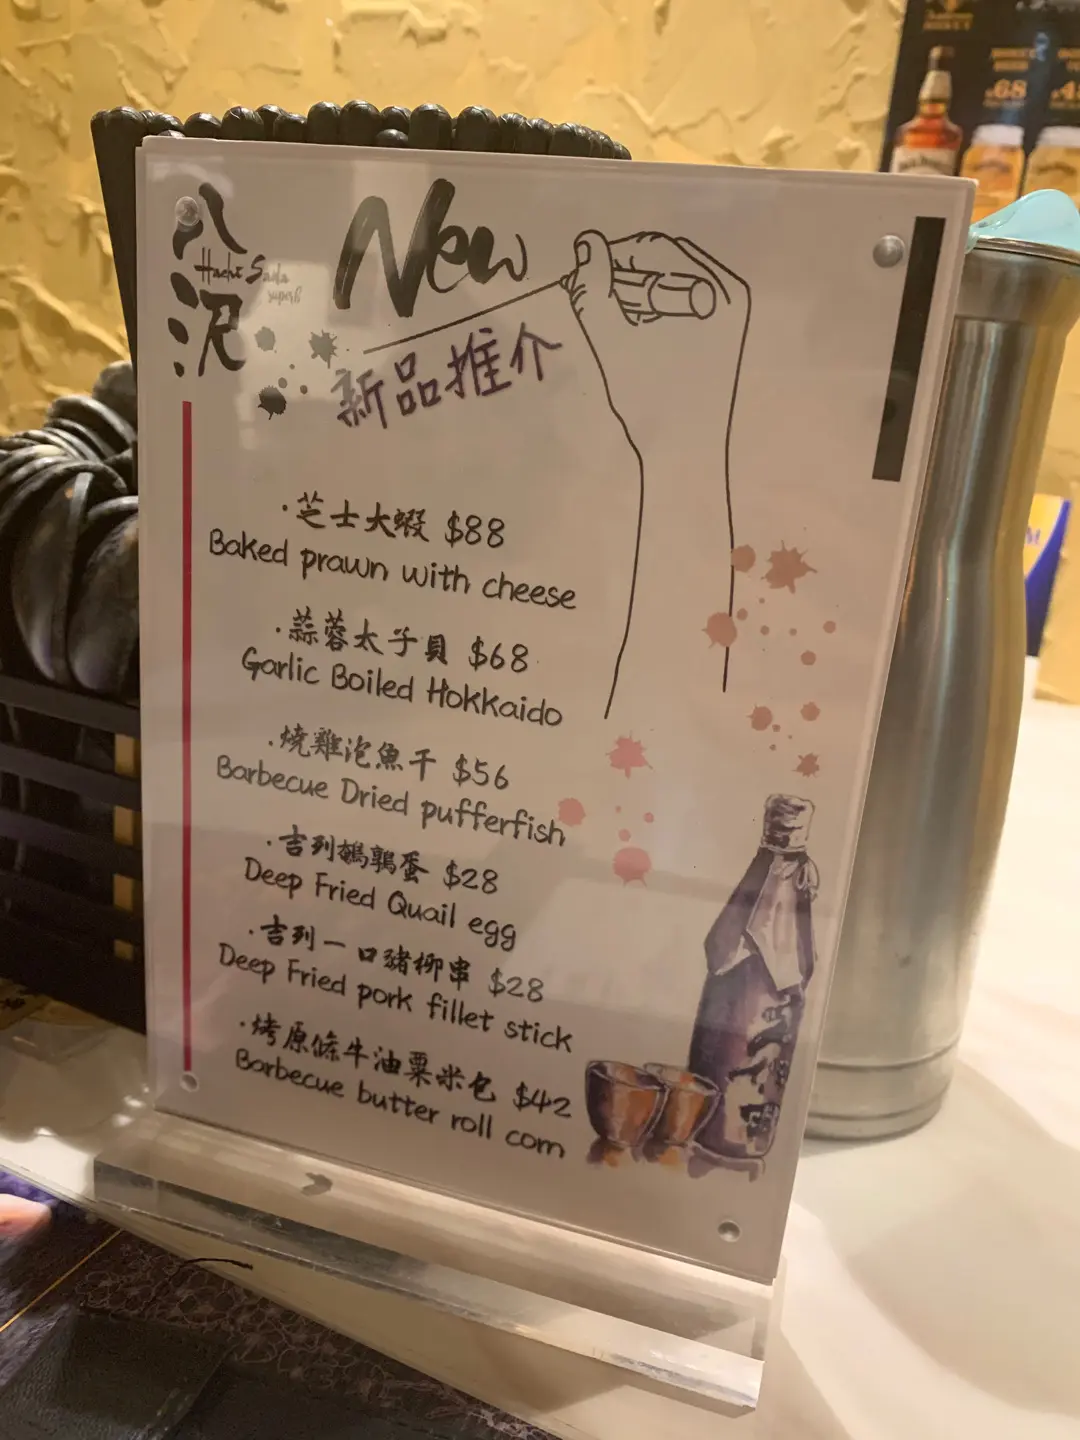 八沢
Hachi Sada
superb
New
新品推介
·芝士大蝦 $88
Baked prawn with cheese
·蒜蓉太子貝 $68
Garlic Boiled Hokkaido
·燒雞泡魚干 $56
Barbecue Dried pufferfish
·吉列鵪鶉蛋 $28
Deep Fried Quail egg
·吉列一口豬柳串 $28
Deep Fried pork fillet stick
·烤原條牛油粟米包 $42
Barbecue butter roll corn